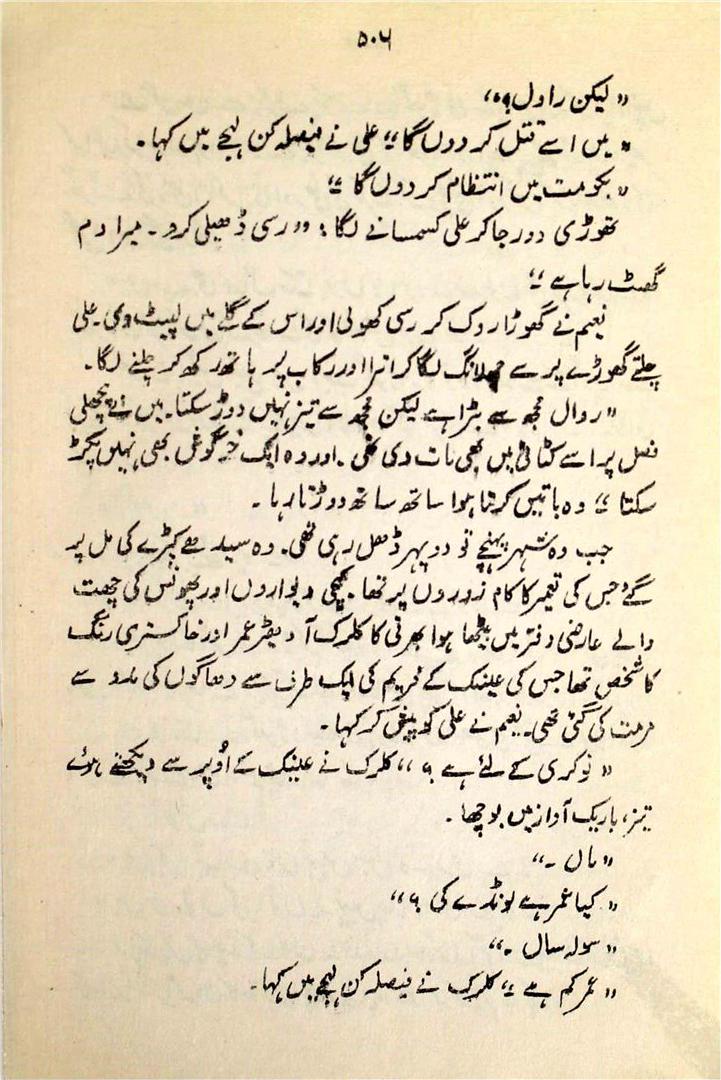 ۵۰۶
"لیکن راول؟"
"میں اسے قتل کر دوں گا" علی نے فیصلہ کن لہجے میں کہا۔
"بکو مت میں انتظام کر دوں گا"
تھوڑی دور جا کر علی کسمسانے لگا: "رسی ڈھیلی کرو۔ میرا دم
گھٹ رہا ہے"
نعیم نے گھوڑا روک کر رسی کھولی اور اس کے گلے میں لپیٹ دی۔ علی
چلتے گھوڑے پر سے چھلانگ لگا کر اترا اور رکاب پر ہاتھ رکھ کر چلنے لگا۔
"روال مجھ سے بڑا ہے لیکن مجھ سے تیز نہیں دوڑ سکتا۔ میں نے پچھلی
فصل پر اسے کٹائی میں بھی مات دی تھی۔ اور وہ ایک خرگوش بھی نہیں پکڑ
سکتا" وہ باتیں کرتا ہوا ساتھ ساتھ دوڑتا رہا۔
جب وہ شہر پہنچے تو دوپہر ڈھل رہی تھی۔ وہ سیدھے کپڑے کی مل پر
گئے جس کی تعمیر کا کام زوروں پر تھا۔ کچی دیواروں اور پھونس کی چھت
والے عارضی دفتر میں بیٹھا ہوا بھرتی کا کلرک ادھیڑ عمر اور خاکستری رنگ
کا شخص تھا جس کی عینک کے فریم کی ایک طرف سے دھاگوں کی مدد سے
مرمت کی گئی تھی۔ نعیم نے علی کو پیش کر کے کہا۔
"نوکری کے لئے ہے؟" کلرک نے عینک کے اُوپر سے دیکھتے ہوئے
تیز، باریک آواز میں پوچھا۔
"ہاں۔"
"کیا عمر ہے لونڈے کی؟"
"سولہ سال۔"
"عمر کم ہے" کلرک نے فیصلہ کن لہجے میں کہا۔